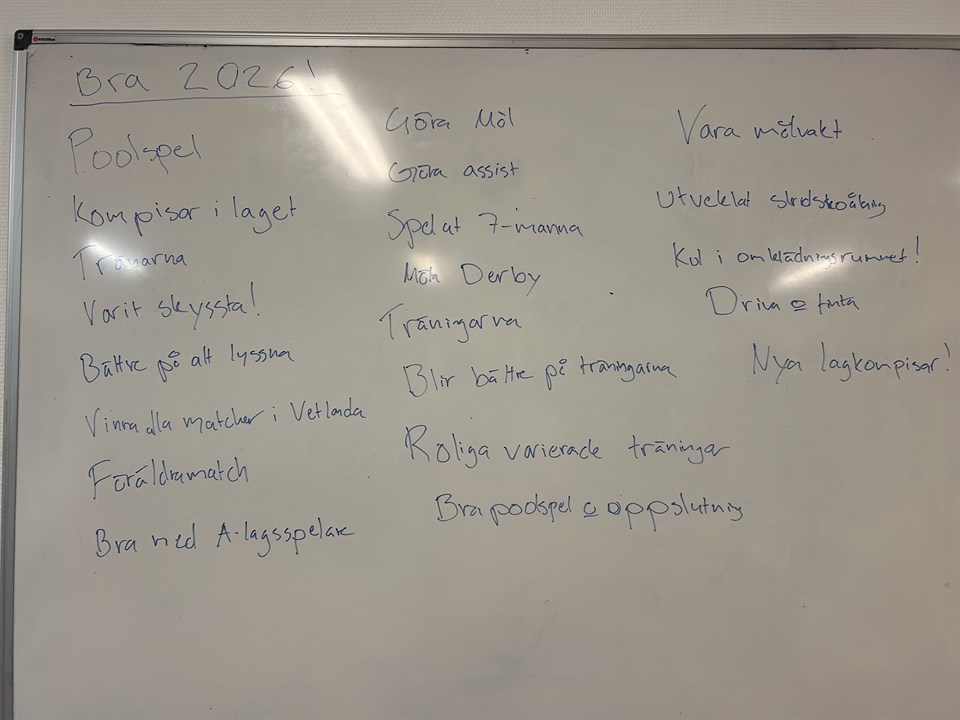 Bra 2026!
Poolspel
Kompisar i laget
Tränarna
Varit skyssta!
Bättre på att lyssna
Vinna alla matcher i Vetlanda
Föräldramatch
Bra med A-lagsspelare
Göra Mål
Göra assist
Spelat 7-manna
Möta Derby
Träningarna
Blir bättre på träningarna
Roliga varierade träningar
Bra poolspel o uppslutning
Vara målvakt
Utvecklat skridskoåkning
Kul i omklädningsrummet!
Driva o finta
Nya lagkompisar!